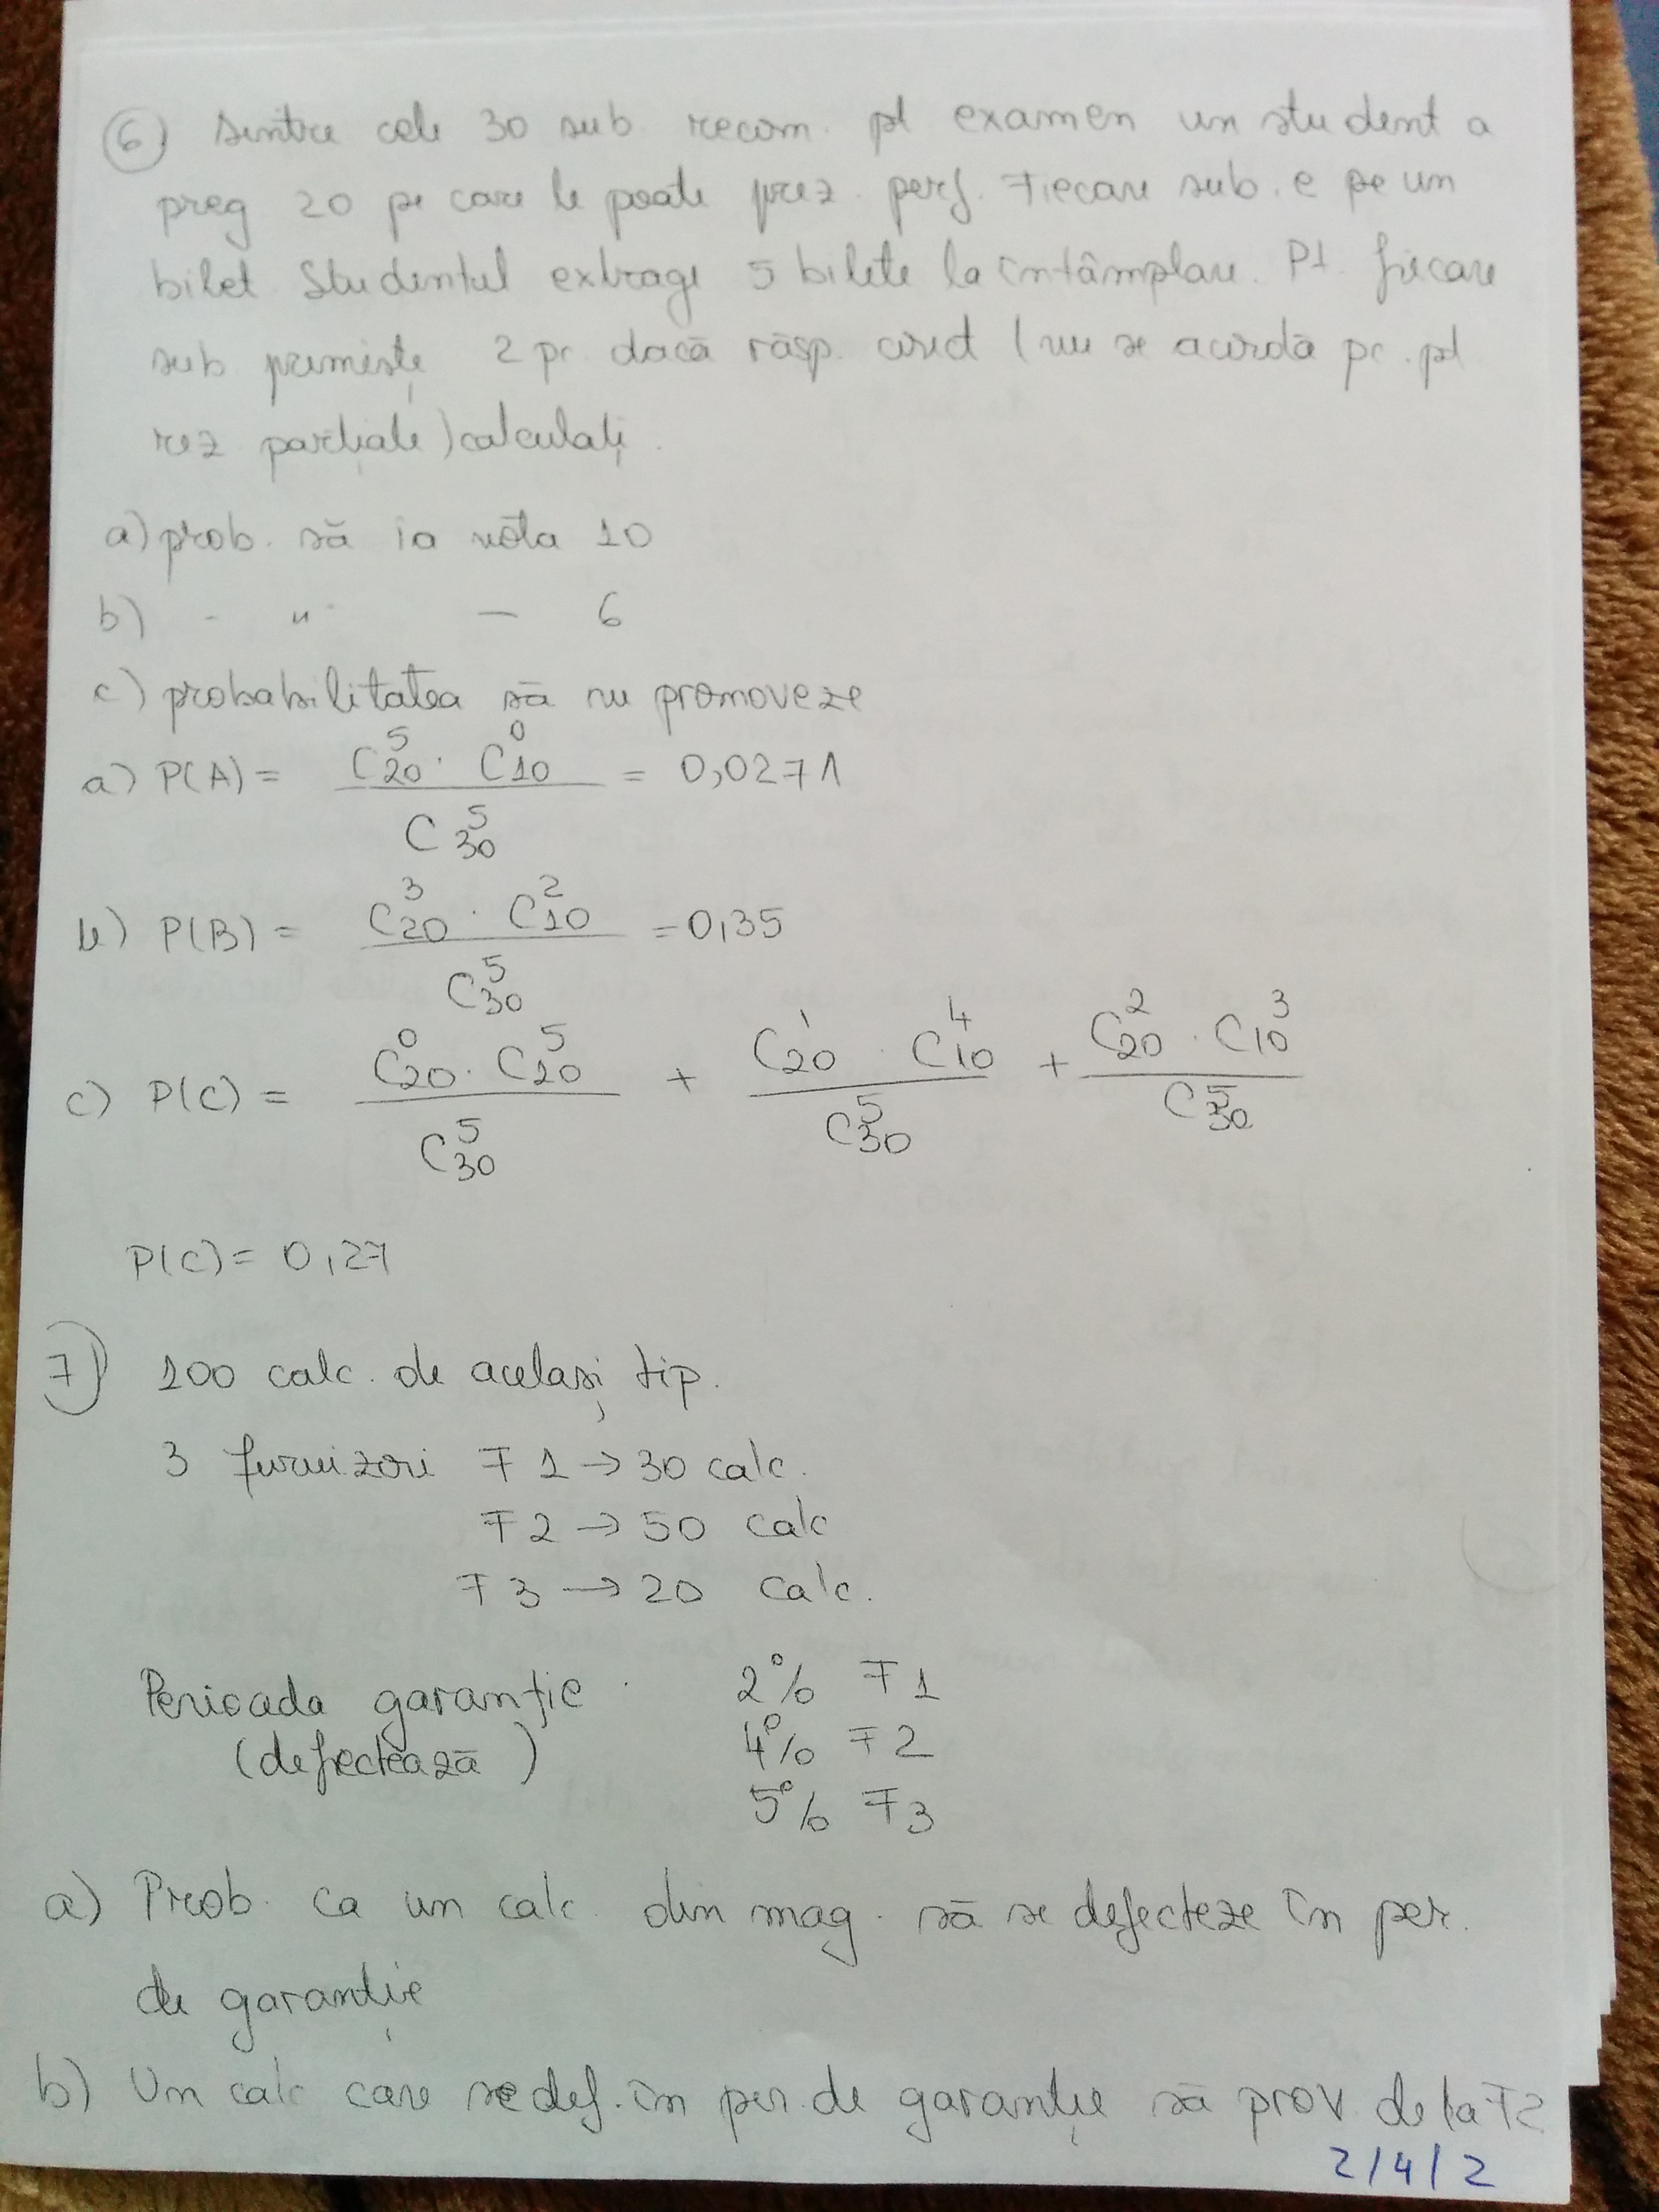 6) Dintre cele 30 sub. recom. pt examen un student a
preg 20 pe care le poate prez. perf. Fiecare sub. e pe un
bilet. Studentul extrage 5 bilete la întâmplare. Pt. fiecare
sub primește 2 pc. dacă răsp. corect (nu se acordă pc. pt
rez parțiale) calculați.
a) prob. să ia nota 10
b) - " - 6
c) probabilitatea să nu promoveze
a) P(A) = C_20^5 · C_10^0 / C_30^5 = 0,0271
b) P(B) = C_20^3 · C_10^2 / C_30^5 = 0,35
c) P(C) = C_20^0 · C_10^5 / C_30^5 + C_20^1 · C_10^4 / C_30^5 + C_20^2 · C_10^3 / C_30^5
P(C) = 0,27
7) 100 calc. de același tip.
3 furnizori F1 → 30 calc.
F2 → 50 calc
F3 → 20 calc.
Perioada garanție. 2% F1
(defectează) 4% F2
5% F3
a) Prob. ca un calc. din mag. să se defecteze în per.
de garanție
b) Un calc care se def. în per. de garanție să prov de la F2
2/4/2